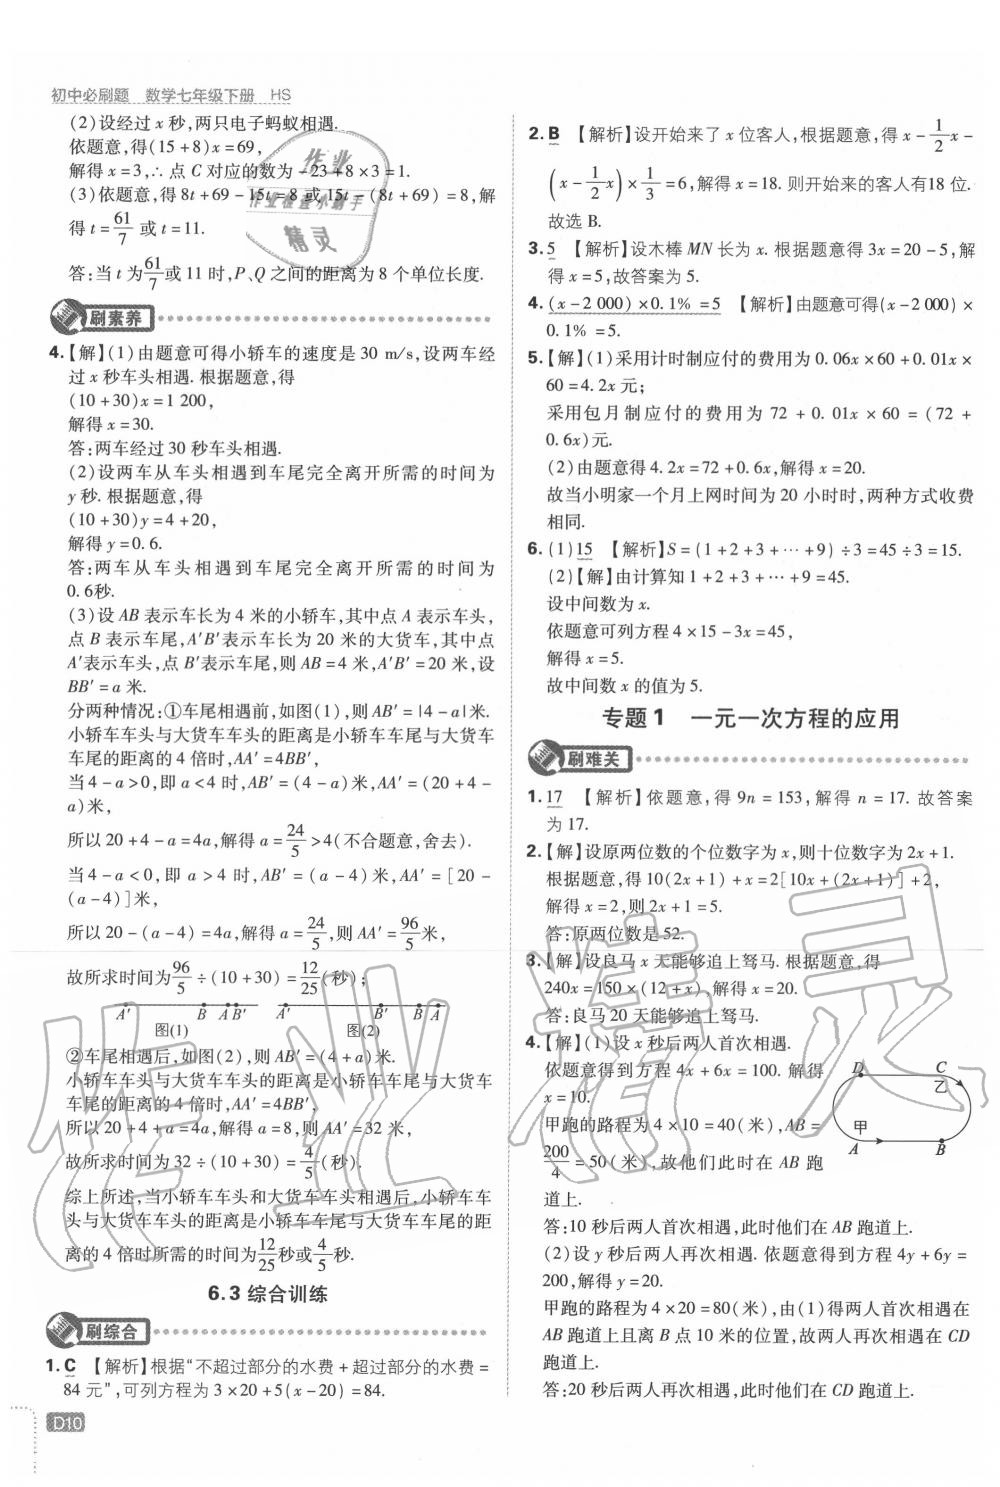 初中必刷题 数学七年级下册 HS
(2)设经过 x 秒,两只电子蚂蚁相遇.
依题意,得(15+8)x=69,
解得 x=3,∴点 C 对应的数为-23+8×3=1.
(3)依题意,得 8t+69-15t=8 或 15t-(8t+69)=8,解
得 t=61/7 或 t=11.
答:当 t 为61/7或 11 时,P、Q 之间的距离为 8 个单位长度.
刷素养
4.【解】(1)由题意可得小轿车的速度是 30 m/s,设两车经
过 x 秒车头相遇.根据题意,得
(10+30)x=1 200,
解得 x=30.
答:两车经过 30 秒车头相遇.
(2)设两车从车头相遇到车尾完全离开所需的时间为
y 秒.根据题意,得
(10+30)y=4+20,
解得 y=0.6.
答:两车从车头相遇到车尾完全离开所需的时间为
0.6秒.
(3)设 AB 表示车长为 4 米的小轿车,其中点 A 表示车头,
点 B 表示车尾,A′B′表示车长为 20 米的大货车,其中点
A′表示车头,点 B′表示车尾,则 AB=4 米,A′B′=20 米,设
BB′=a 米.
分两种情况:①车尾相遇前,如图(1),则 AB′=|4-a|米.
小轿车车头与大货车车头的距离是小轿车车尾与大货车
车尾的距离的 4 倍时,AA′=4BB′,
当 4-a>0,即 a<4 时,AB′=(4-a)米,AA′=(20+4-
a)米,
所以 20+4-a=4a,解得 a=24/5>4(不合题意,舍去).
当 4-a<0,即 a>4 时,AB′=(a-4)米,AA′=[20-
(a-4)]米,
所以 20-(a-4)=4a,解得 a=24/5,则 AA′=96/5米,
故所求时间为96/5÷(10+30)=12/25(秒);
A′ B A B′ A′ B′ B A
图(1) 图(2)
②车尾相遇后,如图(2),则 AB′=(4+a)米.
小轿车车头与大货车车头的距离是小轿车车尾与大货车
车尾的距离的 4 倍时,AA′=4BB′,
所以 20+4+a=4a,解得 a=8,则 AA′=32 米,
故所求时间为 32÷(10+30)=4/5(秒).
综上所述,当小轿车车头和大货车车头相遇后,小轿车车
头与大货车车头的距离是小轿车车尾与大货车车尾的距
离的 4 倍时所需的时间为12/25秒或4/5秒.
6.3 综合训练
刷综合
1.C 【解析】根据“不超过部分的水费+超过部分的水费=
84 元”,可列方程为 3×20+5(x-20)=84.
D10
2.B 【解析】设开始来了 x 位客人,根据题意,得 x-1/2x-
(x-1/2x)×1/3=6,解得 x=18.则开始来的客人有18 位.
故选 B.
3.5 【解析】设木棒 MN 长为 x.根据题意得 3x=20-5,解
得 x=5,故答案为 5.
4.(x-2 000)×0.1%=5 【解析】由题意可得(x-2 000)×
0.1%=5.
5.【解】(1)采用计时制应付的费用为 0.06x×60+0.01x×
60=4.2x 元;
采用包月制应付的费用为 72+0.01x×60=(72+
0.6x)元.
(2)由题意得 4.2x=72+0.6x,解得 x=20.
故当小明家一个月上网时间为 20 小时时,两种方式收费
相同.
6.(1)15 【解析】S=(1+2+3+…+9)÷3=45÷3=15.
(2)【解】由计算知 1+2+3+…+9=45.
设中间数为 x.
依题意可列方程 4×15-3x=45,
解得 x=5.
故中间数 x 的值为 5.
专题 1 一元一次方程的应用
刷难关
1.17 【解析】依题意,得 9n=153,解得 n=17.故答案
为 17.
2.【解】设原两位数的个位数字为 x,则十位数字为 2x+1.
根据题意,得 10(2x+1)+x=2[10x+(2x+1)]+2,
解得 x=2,则 2x+1=5.
答:原两位数是 52.
3.【解】设良马 x 天能够追上驽马.根据题意,得
240x=150×(12+x),解得 x=20.
答:良马 20 天能够追上驽马.
4.【解】(1)设 x 秒后两人首次相遇.
依题意得到方程 4x+6x=100.解得
x=10.
甲跑的路程为 4×10=40(米),AB=
200/4=50(米),故他们此时在 AB 跑
道上.
D C
乙
甲
A B
答:10 秒后两人首次相遇,此时他们在 AB 跑道上.
(2)设 y 秒后两人再次相遇.依题意得到方程 4y+6y=
200,解得 y=20.
甲跑的路程为 4×20=80(米),由(1)得两人首次相遇在
AB 跑道上且离 B 点 10 米的位置,故两人再次相遇在 CD
跑道上.
答:20 秒后两人再次相遇,此时他们在 CD 跑道上.
作业精灵
作业
精灵